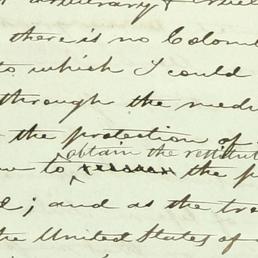 arbitrary &
there is no Colom
to which I could
through the med
the protection of
obtain the restitut
to the p
d; and as the tre
the United States of